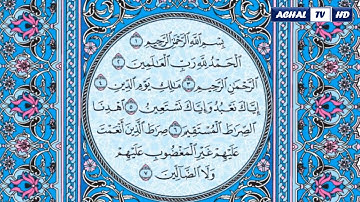 AGHAL TV HD
بِسْمِ اللَّهِ الرَّحْمَٰنِ الرَّحِيمِ ١
الْحَمْدُ لِلَّهِ رَبِّ الْعَالَمِينَ ٢
الرَّحْمَٰنِ الرَّحِيمِ ٣ مَالِكِ يَوْمِ الدِّينِ ٤
إِيَّاكَ نَعْبُدُ وَإِيَّاكَ نَسْتَعِينُ ٥ اهْدِنَا
الصِّرَاطَ الْمُسْتَقِيمَ ٦ صِرَاطَ الَّذِينَ أَنْعَمْتَ
عَلَيْهِمْ غَيْرِ الْمَغْضُوبِ عَلَيْهِمْ
وَلَا الضَّالِّينَ ٧